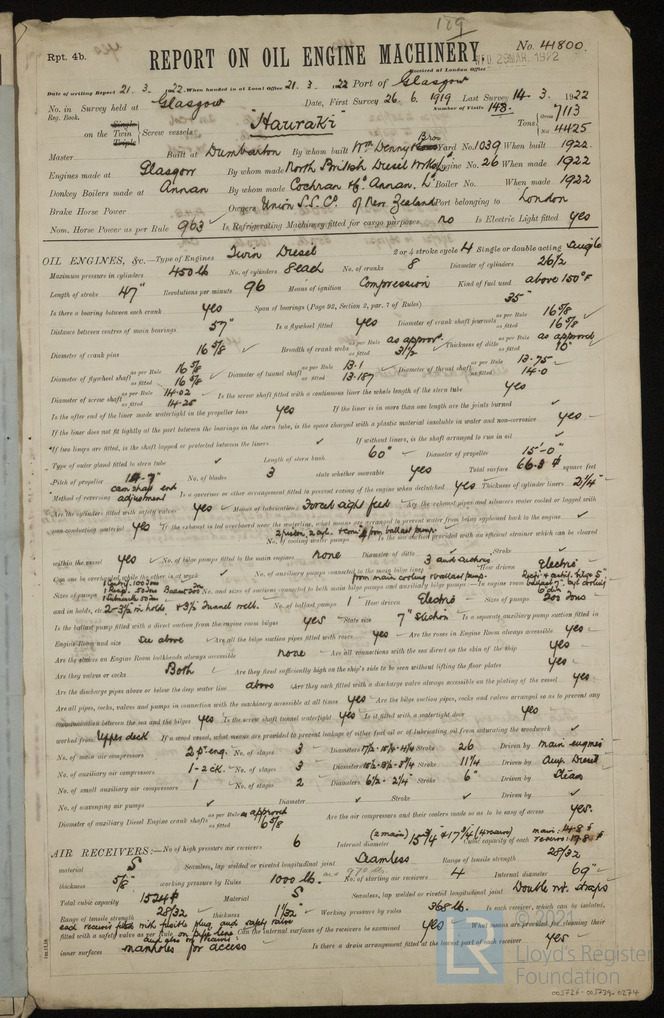 189
Rpt. 4b. REPORT ON OIL ENGINE MACHINERY No. 41800.
Received at London Office WED 29 MAR. 1922
Date of writing Report 21. 3. 1922 When handed in at Local Office 21. 3. 1922 Port of Glasgow
No. in Survey held at Glasgow Date, First Survey 26. 6. 1919 Last Survey 14. 3. 1922
Reg. Book. Number of Visits 148.
on the Single Twin Triple Screw vessels "Hauraki" Tons Gross 7113 Net 4425
Master Built at Dumbarton By whom built Wm Denny & Bros Yard No. 1039 When built 1922.
Engines made at Glasgow By whom made North British Diesel Wks Ld Engine No. 26 When made 1922
Donkey Boilers made at Annan By whom made Cochran & Co Annan. Ld Boiler No. When made 1922
Brake Horse Power Owners Union S.S. Co. of New Zealand Port belonging to London
Nom. Horse Power as per Rule 963 Is Refrigerating Machinery fitted for cargo purposes no Is Electric Light fitted yes
OIL ENGINES, &c.—Type of Engines Twin Diesel 2 or 4 stroke cycle 4 Single or double acting Single
Maximum pressure in cylinders 450 lb No. of cylinders 8 each No. of cranks 8 Diameter of cylinders 26½
Length of stroke 47" Revolutions per minute 96 Means of ignition Compression Kind of fuel used above 150°F
Is there a bearing between each crank yes Span of bearings (Page 92, Section 2, par. 7 of Rules) 35"
Distance between centres of main bearings 57" Is a flywheel fitted yes Diameter of crank shaft journals as per Rule 16 5/8 as fitted 16 5/8
Diameter of crank pins 16 5/8 Breadth of crank webs as per Rule as approv. as fitted 31½ Thickness of ditto as per Rule as approved as fitted 10"
Diameter of flywheel shaft as per Rule 16 5/8 as fitted 16 5/8 Diameter of tunnel shaft as per Rule 13.1 as fitted 13.187 Diameter of thrust shaft as per Rule 13.75 as fitted 14.0
Diameter of screw shaft as per Rule 14.02 as fitted 14.25 Is the screw shaft fitted with a continuous liner the whole length of the stern tube yes
Is the after end of the liner made watertight in the propeller boss yes If the liner is in more than one length are the joints burned
If the liner does not fit tightly at the part between the bearings in the stern tube, is the space charged with a plastic material insoluble in water and non-corrosive yes
If two liners are fitted, is the shaft lapped or protected between the liners If without liners, is the shaft arranged to run in oil
Type of outer gland fitted to stern tube Length of stern bush 60" Diameter of propeller 15'-0"
Pitch of propeller No. of blades 3 state whether moveable yes Total surface square feet
Method of reversing cam shaft end adjustment Is a governor or other arrangement fitted to prevent racing of the engine when declutched yes Thickness of cylinder liners 2¼"
Are the cylinders fitted with safety valves yes Means of lubrication Forced sight feed Are the exhaust pipes and silencers water cooled or lagged with
non-conducting material yes If the exhaust is led overboard near the waterline, what means are arranged to prevent water from being syphoned back to the engine
No. of cooling water pumps Is the sea suction provided with an efficient strainer which can be cleared
within the vessel yes No. of bilge pumps fitted to the main engines none Diameter of ditto Stroke
Can one be overhauled while the other is at work No. of auxiliary pumps connected to the main bilge lines 3 How driven Electric
Sizes of pumps No. and sizes of suctions connected to both main bilge pumps and auxiliary bilge pumps:—In engine room
and in holds, etc. 2-3½ in holds & 3½ Tunnel well. No. of ballast pumps 1 How driven Electric Sizes of pumps
Is the ballast pump fitted with a direct suction from the engine room bilges yes State size 7" suction Is a separate auxiliary pump suction fitted in
Engine Room and size See above Are all the bilge suction pipes fitted with roses yes Are the roses in Engine Room always accessible yes
Are the sluices on Engine Room bulkheads always accessible none Are all connections with the sea direct on the skin of the ship yes
Are they valves or cocks Both Are they fixed sufficiently high on the ship's side to be seen without lifting the floor plates yes
Are the discharge pipes above or below the deep water line above Are they each fitted with a discharge valve always accessible on the plating of the vessel yes
Are all pipes, cocks, valves, and pumps in connection with the machinery accessible at all times yes Are the bilge suction pipes, cocks and valves arranged so as to prevent any
communication between the sea and the bilges yes Is the screw shaft tunnel watertight yes Is it fitted with a watertight door yes
worked from Upper deck If a wood vessel, what means are provided to prevent leakage of either fuel oil or of lubricating oil from saturating the woodwork
No. of main air compressors 2 p. eng. No. of stages 3 Diameters Stroke 26 Driven by main engines
No. of auxiliary air compressors 1-2 ck. No. of stages 3 Diameters Stroke 11¼ Driven by Aux. Diesel
No. of small auxiliary air compressors 1 No. of stages 2 Diameters 6½ - 2¼" Stroke 6" Driven by Steam
No. of scavenging air pumps Diameter Stroke Driven by
Diameter of auxiliary Diesel Engine crank shafts as per Rule as approved as fitted 6 5/8 Are the air compressors and their coolers made so as to be easy of access yes.
AIR RECEIVERS:—No. of high pressure air receivers 6 Internal diameter Cubic capacity of each
material S Seamless, lap welded or riveted longitudinal joint Seamless Range of tensile strength 28/32
thickness 5/8" working pressure by Rules 1000 lb. No. of starting air receivers 4 Internal diameter 69"
Total cubic capacity 1524 Material S Seamless, lap welded or riveted longitudinal joint Double riv. straps
Range of tensile strength 28/32 thickness 1 1/32" Working pressure by rules 368 lb. Is each receiver, which can be isolated,
fitted with a safety valve as per Rule each receiver fitted with fusible plug and safety valve on pipe line Can the internal surfaces of the receivers be examined yes What means are provided for cleaning their
inner surfaces manholes for access Is there a drain arrangement fitted at the lowest part of each receiver yes
© 2021
LR Lloyd's Register
Foundation
003726-003739-0274